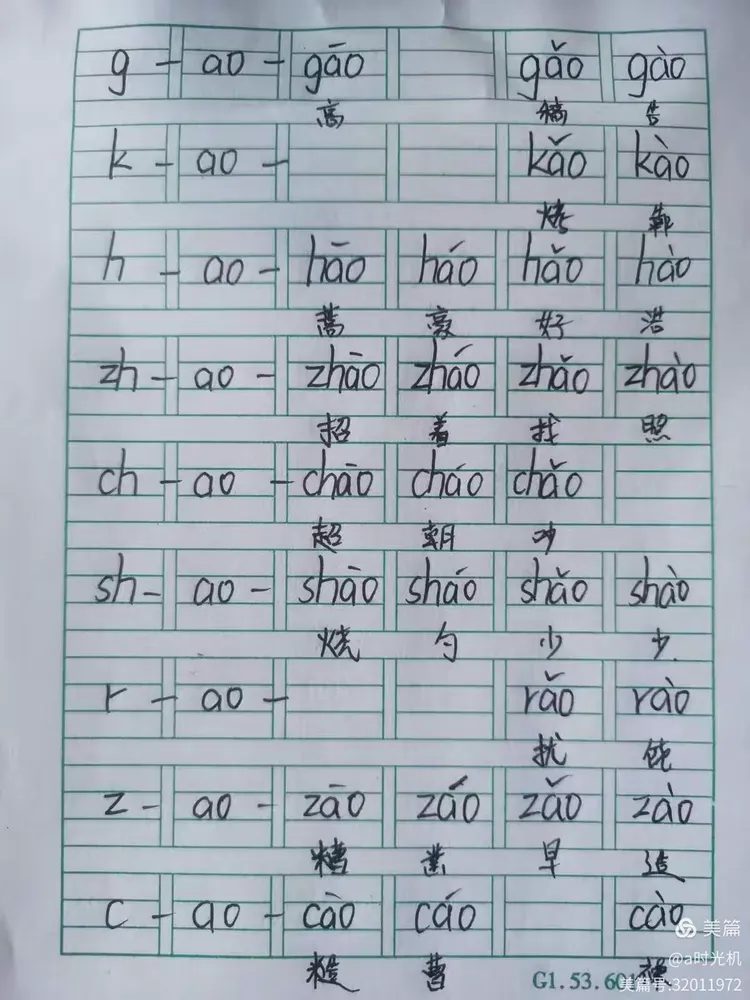 g – ao – gāo gǎo gào
高 稿 告
k – ao – kǎo kào
烤
h – ao – hāo háo hǎo hào
蒿 豪 好 浩
zh – ao – zhāo zháo zhǎo zhào
招 着 找 照
ch – ao – chāo cháo chǎo
超 朝 吵
sh – ao – shāo sháo shǎo shào
烧 勺 少 少
r – ao – rǎo rào
扰
z – ao – zāo záo zǎo zào
糟 凿 早 造
c – ao – cāo cáo cào
糙 曹
美篇
@a时光机
G1.53.60
美篇号:32011972